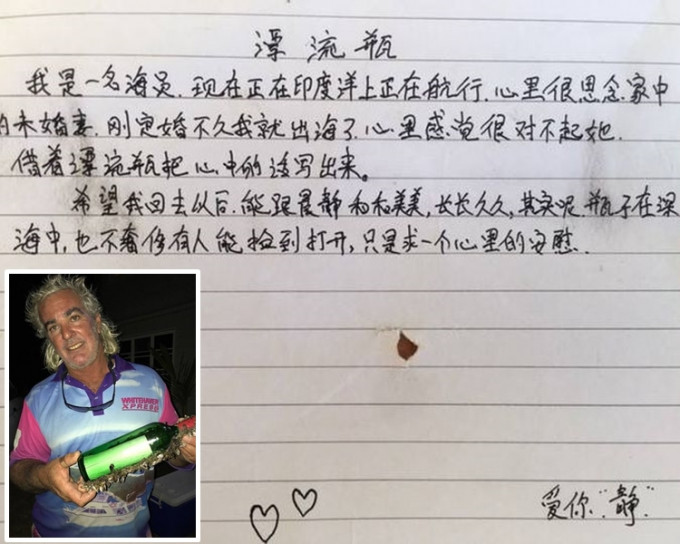 漂流瓶
我是一名海员.现在正在印度洋上正在航行.心里很思念家中
的未婚妻.刚定婚不久我就出海了.心里感觉很对不起她.
借着漂流瓶把心中的话写出来。
希望我回去以后.能跟晨静和和美美,长长久久,其实呢.瓶子在深
海中,也不奢侈有人能捡到打开,只是求一个心里的安慰.
爱你"静"
WHITEHAVEN
XPRESS